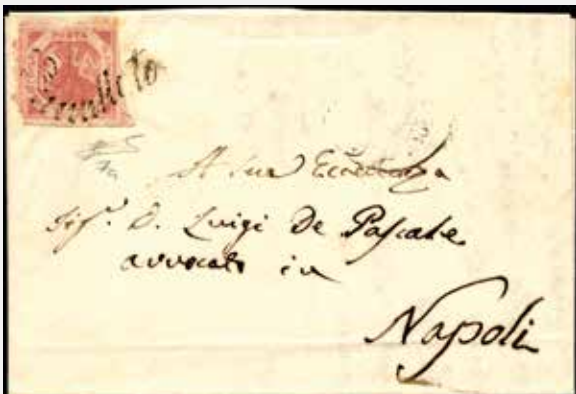 POSTA
A Sua Eccellenza
Sig. D. Luigi De Pascale
avvocato in
Napoli